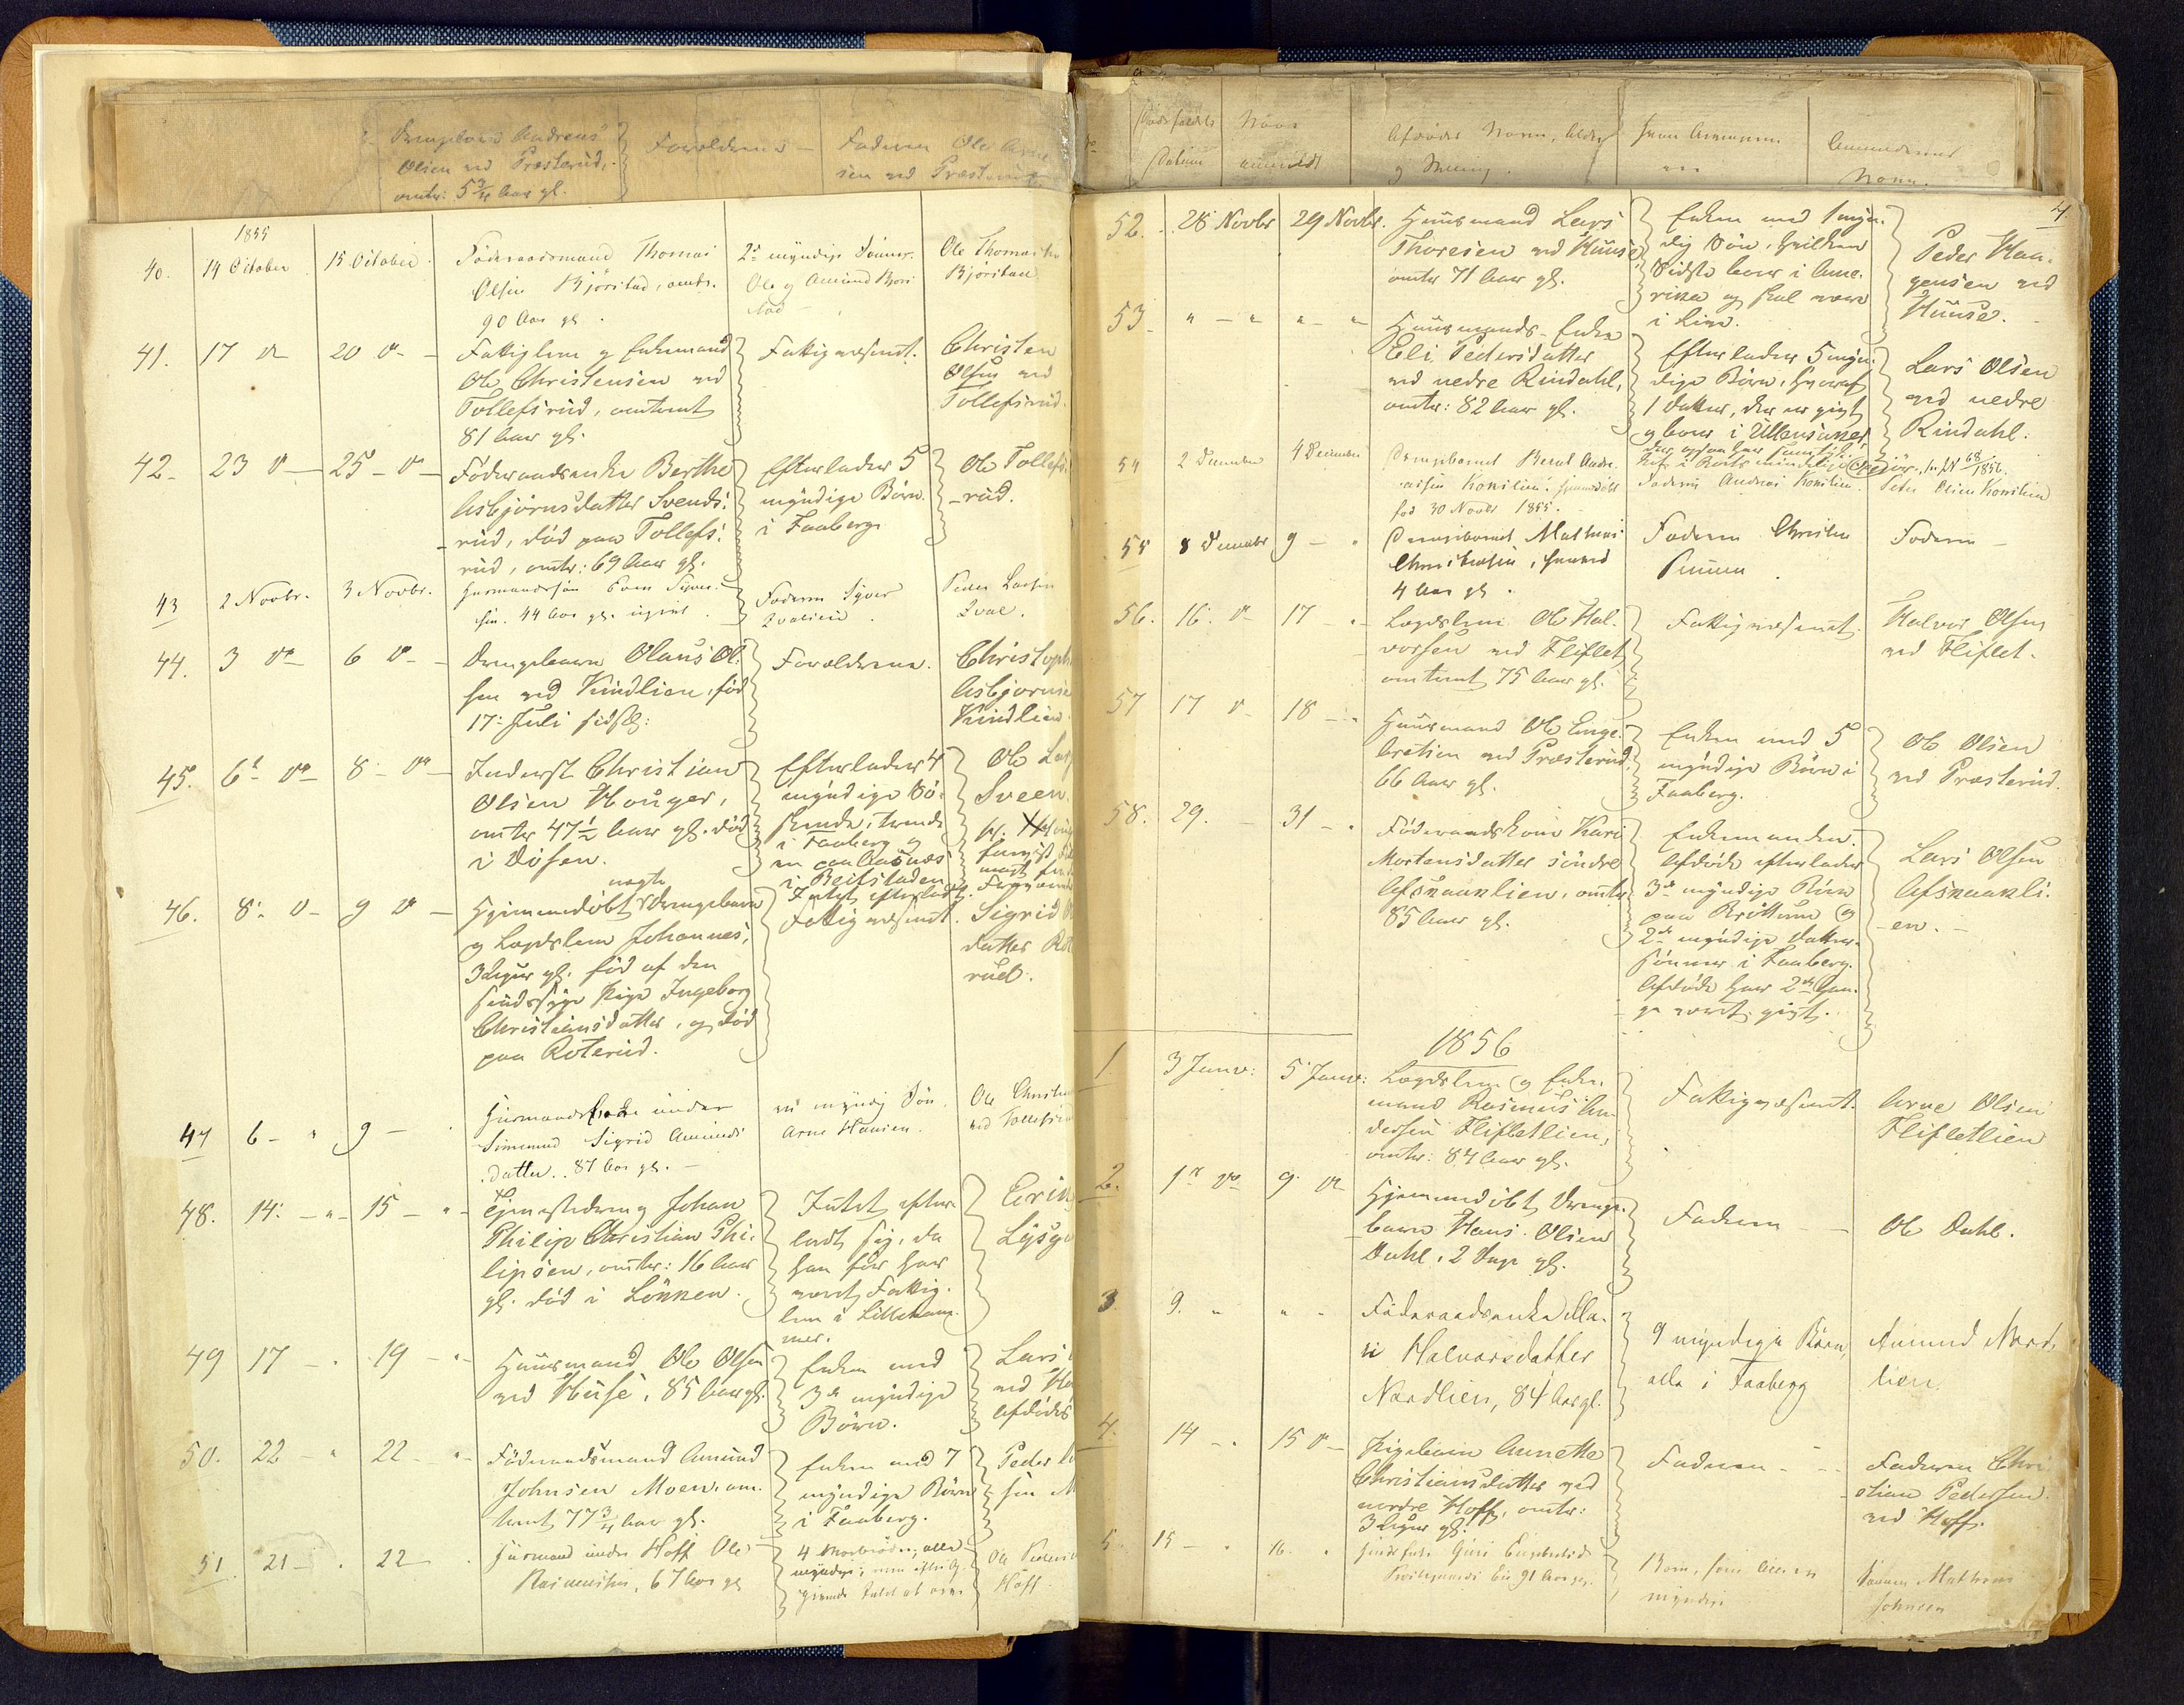 Drengebarn Andreas
Olsen ved Præsterud,
omtr: 5 3/4 Aar gl.
Forældrene —
Faderen Ole Arne
sen ved Præsterud
1855
40. 14 October 15 October.
Föderaadsmand Thomas
Olsen Bjørstad, omtr.
90 Aar gl.
2de myndige Sönner.
Ole og Amund Bjør
stad
Ole Thomassen
Bjørstad
41. 17 do 20 do —
Fattiglem og Enkemand
Ole Christensen ved
Tollefsrud, omtrent
81 Aar gl.
Fattigvæsenet.
Christen
Olsen ved
Tollefsrud.
42 23 do — 25 — do —
Föderaadsenke Berthe
Asbjörnsdatter Svends:
rud, död paa Tollefs:
rud, omtr: 69 Aar gl.
Efterlader 5
myndige Börn
i Faaberg
Ole Tollefs
rud.
43 2 Novbr. 3 Novbr.
Husmandssøn Even Syver
sen. 44 Aar gl. ugivt
Faderen Syver
Peder Larsen
44. 3 do 6 do —
Drengebarn Olaus Ol:
sen ved Kindlien, född
17: Juli sidstl:
Forældrene.
Christoph
Asbjørnse
Kindlien.
45. 6te do 8 do —
Inderst Christian
Olsen Houger,
omtr 47 1/2 Aar gl. död
i Døsen.
Efterlader 4
myndige Sö-
skende, trende
i Faaberg og
en paa
i Beitstaden
Ole Lar
Sveen.
46. 8: do 9 do —
Hjemmedøbt Drengebarn
og Lægdslem Johannes,
3 Uger gl. född af den
sindssyge Pige Ingeborg
Christiansdatter, og död
paa Roterud.
Fattigvæsenet.
Sigrid
datter Ro
rud.
47 6 — " 9 —
Husmandsenke under
Simenrud Sigrid Amunds
datter. 87 Aar gl. —
en myndig Søn
Arne Hansen.
Ole Christen
ved Tollefsru
48. 14: — " — 15 — " —
Tjenestedreng Johan
Philip Christian Phi-
lipsen, omtr: 16 Aar
gl. död i Lönken.
Intet efter-
ladt sig, da
han før har
været Fattig-
lem i Lilleham-
mer.
Erik
Lysg
49 17 — " 19 — "
Huusmand Ole Olsen
ved Huse, 85 Aar gl.
Enken med
3de myndige
Börn.
Lars
ved Hu
Afdødes
50. 22 — " 22 — "
Föderaadsmand Amund
Johnsen Moen, om-
trent 77 3/4 Aar gl.
Enken med 7
myndige Börn
i Faaberg.
Peder
sen M
51 21 — . 22 —
Husmand under Hoff Ole
Rasmussen, 67 Aar gl
4 Morbrødre, alle
myndige,
Ole Peders
Hoff
Dødsfaldets
Datum
Naar
anmeldt
Afdødes Navn, Alder
og Stilling.
Anmelderens
Navn.
4
52. 28 Novbr 29 Novbr.
Huusmand Lars
Thoresen ved Huuse
omtr 71 Aar gl.
Enken med 1 myn-
dig Sön, hvilken
Sidste boer i Ame-
rika og skal være
i Live.
Peder Haa-
gensen ved
Huuse.
53 " — " " — "
Huusmands-Enke
Eli Pedersdatter
ved nedre Rindahl,
omtr: 82 Aar gl.
Efterlader 5 myn-
dige Börn, hvoraf
1 datter, der er gift
og boer i Ullensaker,
Lars Olsen
ved nedre
Rindahl.
54 2 December 4 December
Drengebarnet Bernt Andre
assen Korslien, hjemmedøbt
fød 30 Novbr 1855.
Faderen Andreas Korslien.
Peder Olsen Korslien
55 8 December 9 — "
Drengebarnet Mathias
Christensen,
4 Aar gl.
Faderen Christen
Faderen —
56. 16. do 17 — "
Lægdslem Ole Hal-
vorsen ved Fliflet
omtrent 75 Aar gl.
Fattigvæsenet.
Halvor Olsen
ved Fliflet.
57 17 do 18 — "
Huusmand Ole Enge-
bretsen ved Præsterud,
66 Aar gl.
Enken med 5
myndige Börn i
Faaberg.
Ole Olsen
ved Præsterud.
58. 29. — 31 — "
Föderaadskone Kari
Mortensdatter söndre
Afskaaklien, omtr:
85 Aar gl.
Enkemanden.
Afdøde efterlader
3de myndige Börn
paa og
2de myndige Datter-
sönner i Faaberg.
Afdøde har 2de Gan-
ge været gift.
Lars Olsen
Afskaakli-
en. —
1856
1. 3 Janr: 5 Janr:
Lægdslem og Enke-
mand Rasmus An-
dersen Flifletlien,
omtr: 84 Aar gl.
Fattigvæsenet.
Arne Olsen
Flifletlien
2. 1ste do 9 do
Hjemmedöbt Drenge-
barn Hans Olsen
Dahl, 2 Dage gl.
Faderen —
Ole Dahl.
3. 9. " " "
Föderaadsenke Ma-
ri Halvorsdatter
Nordlien, 84 Aar gl.
9 myndige Børn,
alle i Faaberg
Amund Nord-
lien.
4. 14 — . 15 do —
Pigebarn Annette
Christiansdatter ved
nordre Hoff, omtr:
3 Uger gl.
Faderen — —
Faderen Chri
stian Pedersen
ved Hoff.
5 15 — " 16. "
91 Aar gl.
Børn, som alle er
myndige
Sønnen Mathias
Johnsen